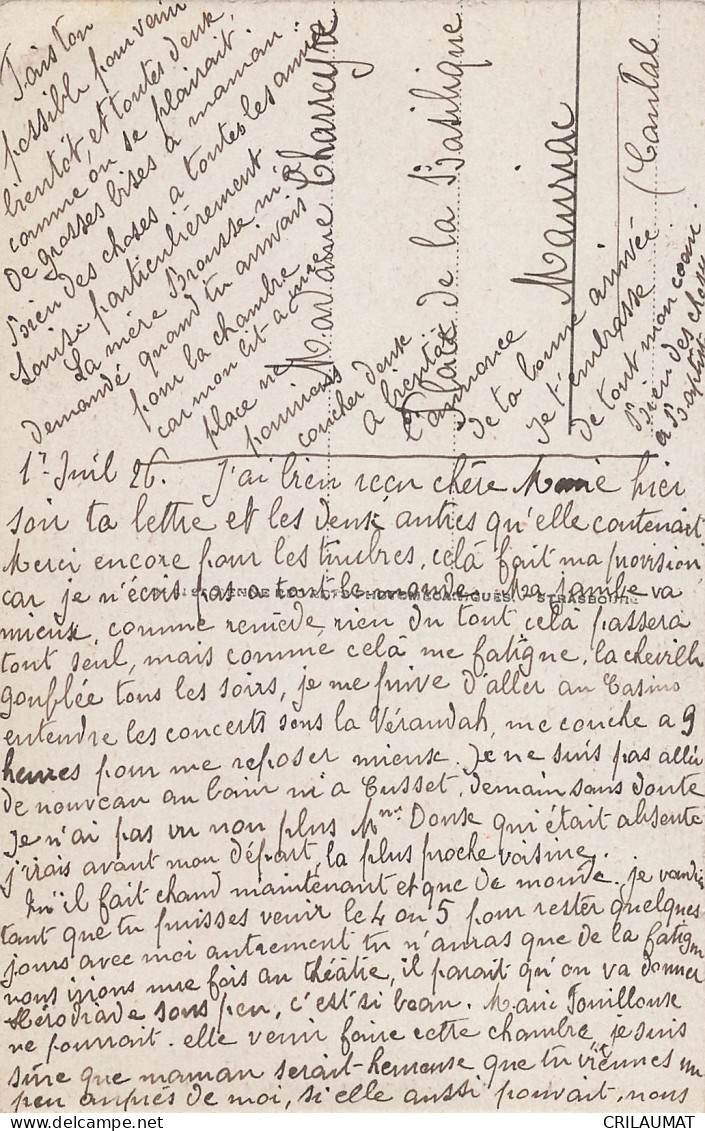 1r Juil 26. J'ai bien reçu chère Marie hier
soir ta lettre et les deux autres qu'elle contenait
Merci encore pour les timbres, celà fait ma provision
car je n'écris pas a tout le monde. Ma jambe va
mieux, comme remède, rien du tout celà passera
tout seul, mais comme celà me fatigue, la cheville
gonflée tous les soirs, je me prive d'aller au Casino
entendre les concerts sous la Vérandah, me couche a 9
heures pour me reposer mieux. Je ne suis pas allée
de nouveau au bain ni a Cusset, demain sans doute
Je n'ai pas vu non plus Mme Donse qui était absente
j'irais avant mon départ, la plus proche voisine.
Qu'il fait chaud maintenant et que de monde. je voudrais
tant que tu puisses venir le 4 ou 5 pour rester quelques
jours avec moi autrement tu n'auras que de la fatigue
nous irions une fois au théâtre, il parait qu'on va donner
Hérodiade sous peu, c'est si beau. Marie Fouilloux
ne pourrait-elle venir faire cette chambre, je suis
sûre que maman serait heureuse que tu viennes un
peu auprès de moi, si elle aussi pouvait, nous
Fais ton
possible pour venir
bientôt, et toutes deux,
comme on se plairait.
De grosses bises a maman.
Bien des choses a toutes les amies
Louise particulièrement
La mère Brousse m'a
demandé quand tu arrivais
pour la chambre
car mon lit a une
place ne
pourrions
coucher deux
a bientôt
l'annonce
de ta bonne arrivée
Je t'embrasse
de tout mon cœur.
Bien des choses
a Baptiste
Madame Charreyre
Place de la Basilique
Mauriac
(Cantal
STRASBOURG
CRILAUMAT